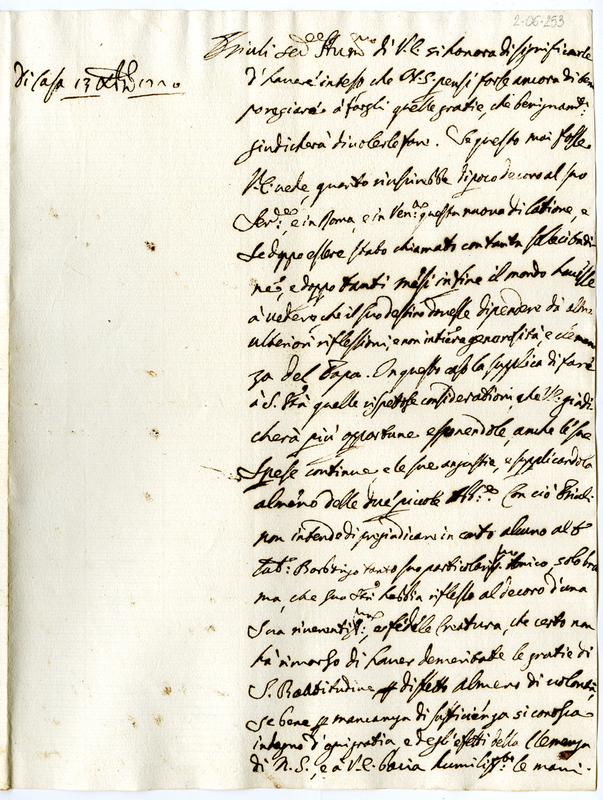 2-06-253
Di Casa 13
Priuli di V.E. si honora di significarle
d'havere inteso che N.S. pensi forse ancora di tem
poregiare à fargli quelle gratie, che benignam.te
giudicherà di volerle fare. Se questo mai fosse
V.E. vede, quanto riuscirebbe di poco decoro al suo
Ser.re, e in Roma, e in Ven.a questa nuova dilatione, e
se doppo essere stato chiamato con tanta
ne, e doppo tanti mesi in fine il mondo havesse
à vedere, che il suo destino dovesse dipendere da altre
ulteriori riflessioni, e non intiera generosità, e clemen
za del Papa. In questo caso la supplica di fare
à S. Stà quelle rispettose considerationi, che V.E. giudi
cherà più opportune esponendole, anche le sue
spese continue, e le sue angustie, e supplicandola
almeno delle due piccole Con ciò Priuli
non intende di pregiudicare in conto alcuno al
Barbarigo tanto suo particolariss.mo Amico, solo bra
ma, che Sua Stà habbia riflesso al decoro d'una
sua riverentiss.ma, e fedele Creatura, che certo non
hà rimorso di haver demeritate le gratie di
S. Beatitudine per difetto almeno di volontà,
se bene per mancanza di sufficienza si conosca
indegno d'ogni gratia e degl'effetti della Clemenza
di N.S., e à V.E. bacia humiliss.te le mani.